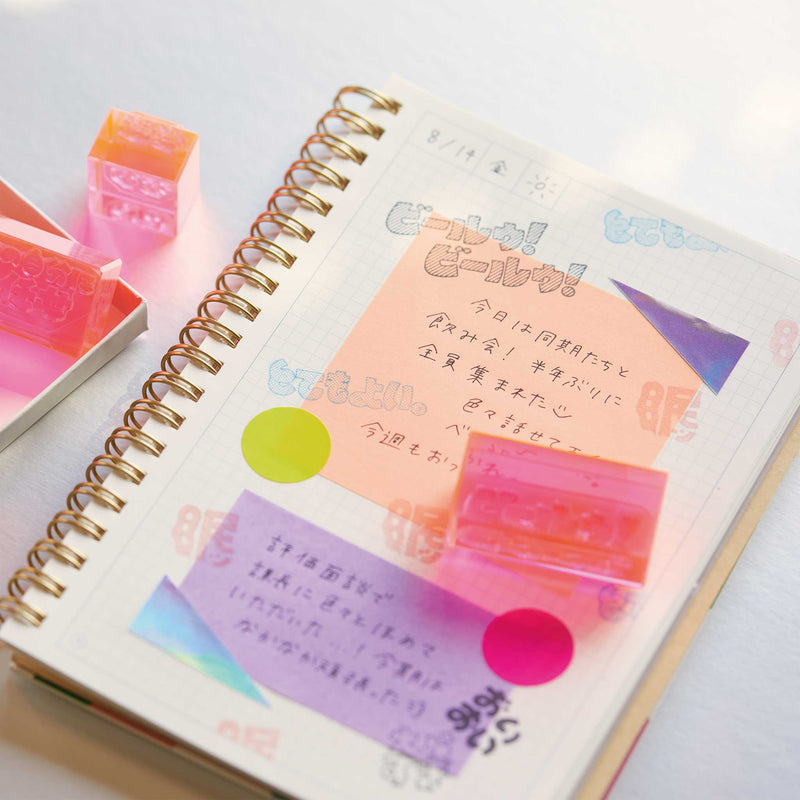 8/14 金
ビールゥ!
ビールゥ!
とてもよい。
今日は同期たちと
飲み会! 半年ぶりに
全員集まれた
色々話せて
今週もおつ
とてもよい。
眠
眠
眠
評価面談で
課長に色々とほめて
いただいた…! 今期は
なかなか頑張った
おいおい
眠